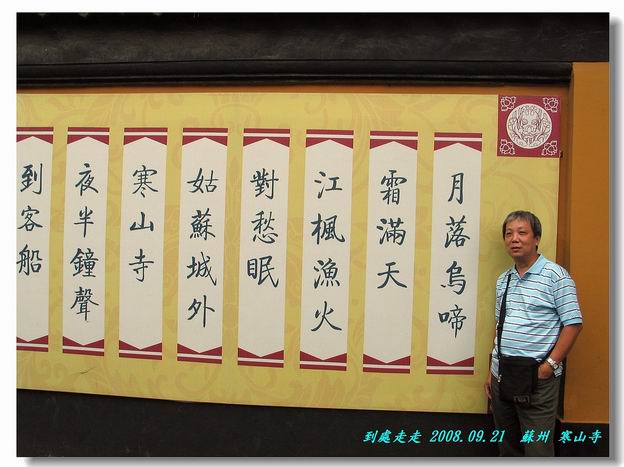 月落烏啼
霜滿天
江楓漁火
對愁眠
姑蘇城外
寒山寺
夜半鐘聲
到客船
到處走走 2008.09.21 蘇州 寒山寺